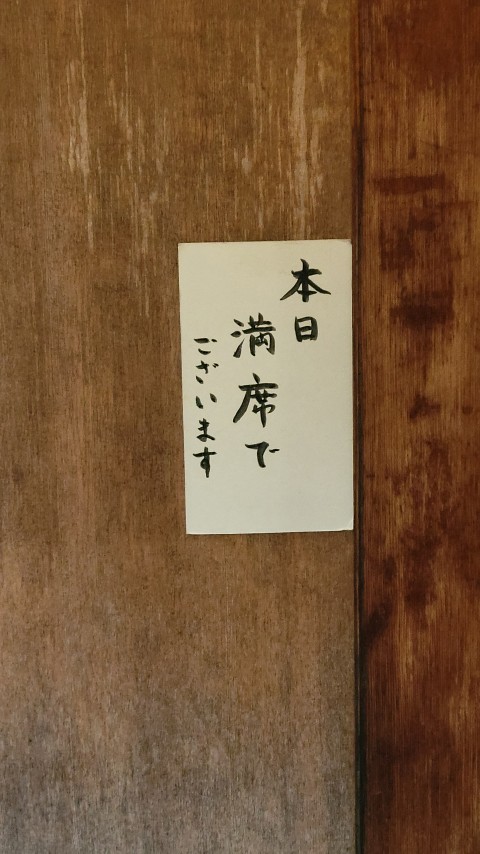 本日
満席で
ございます